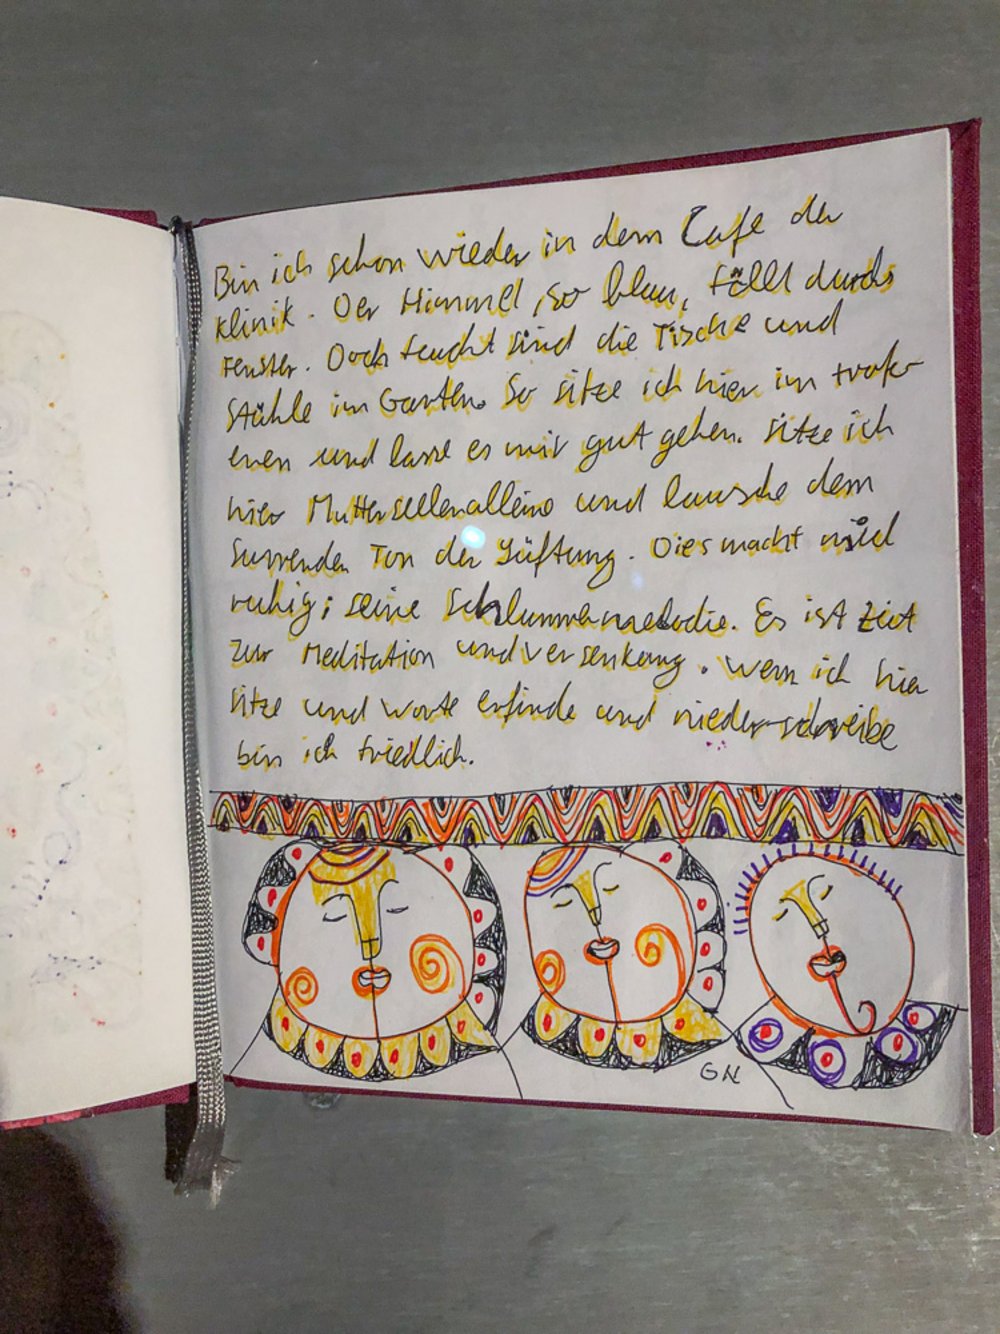 Bin ich schon wieder in dem Cafe der
Klinik. Der Himmel, so blau, fällt durchs
Fenster. Doch feucht sind die Tische und
Stühle im Garten. So sitze ich hier im trok-
enen und lasse es mir gut gehen. Sitze ich
hier Mutterseelenalleine und lausche dem
surrenden Ton der Lüftung. Dies macht mich
ruhig; seine Schlummermelodie. Es ist Zeit
zur Meditation und Versenkung. Wenn ich hier
sitze und Worte erfinde und nieder-schreibe
bin ich friedlich.
GN